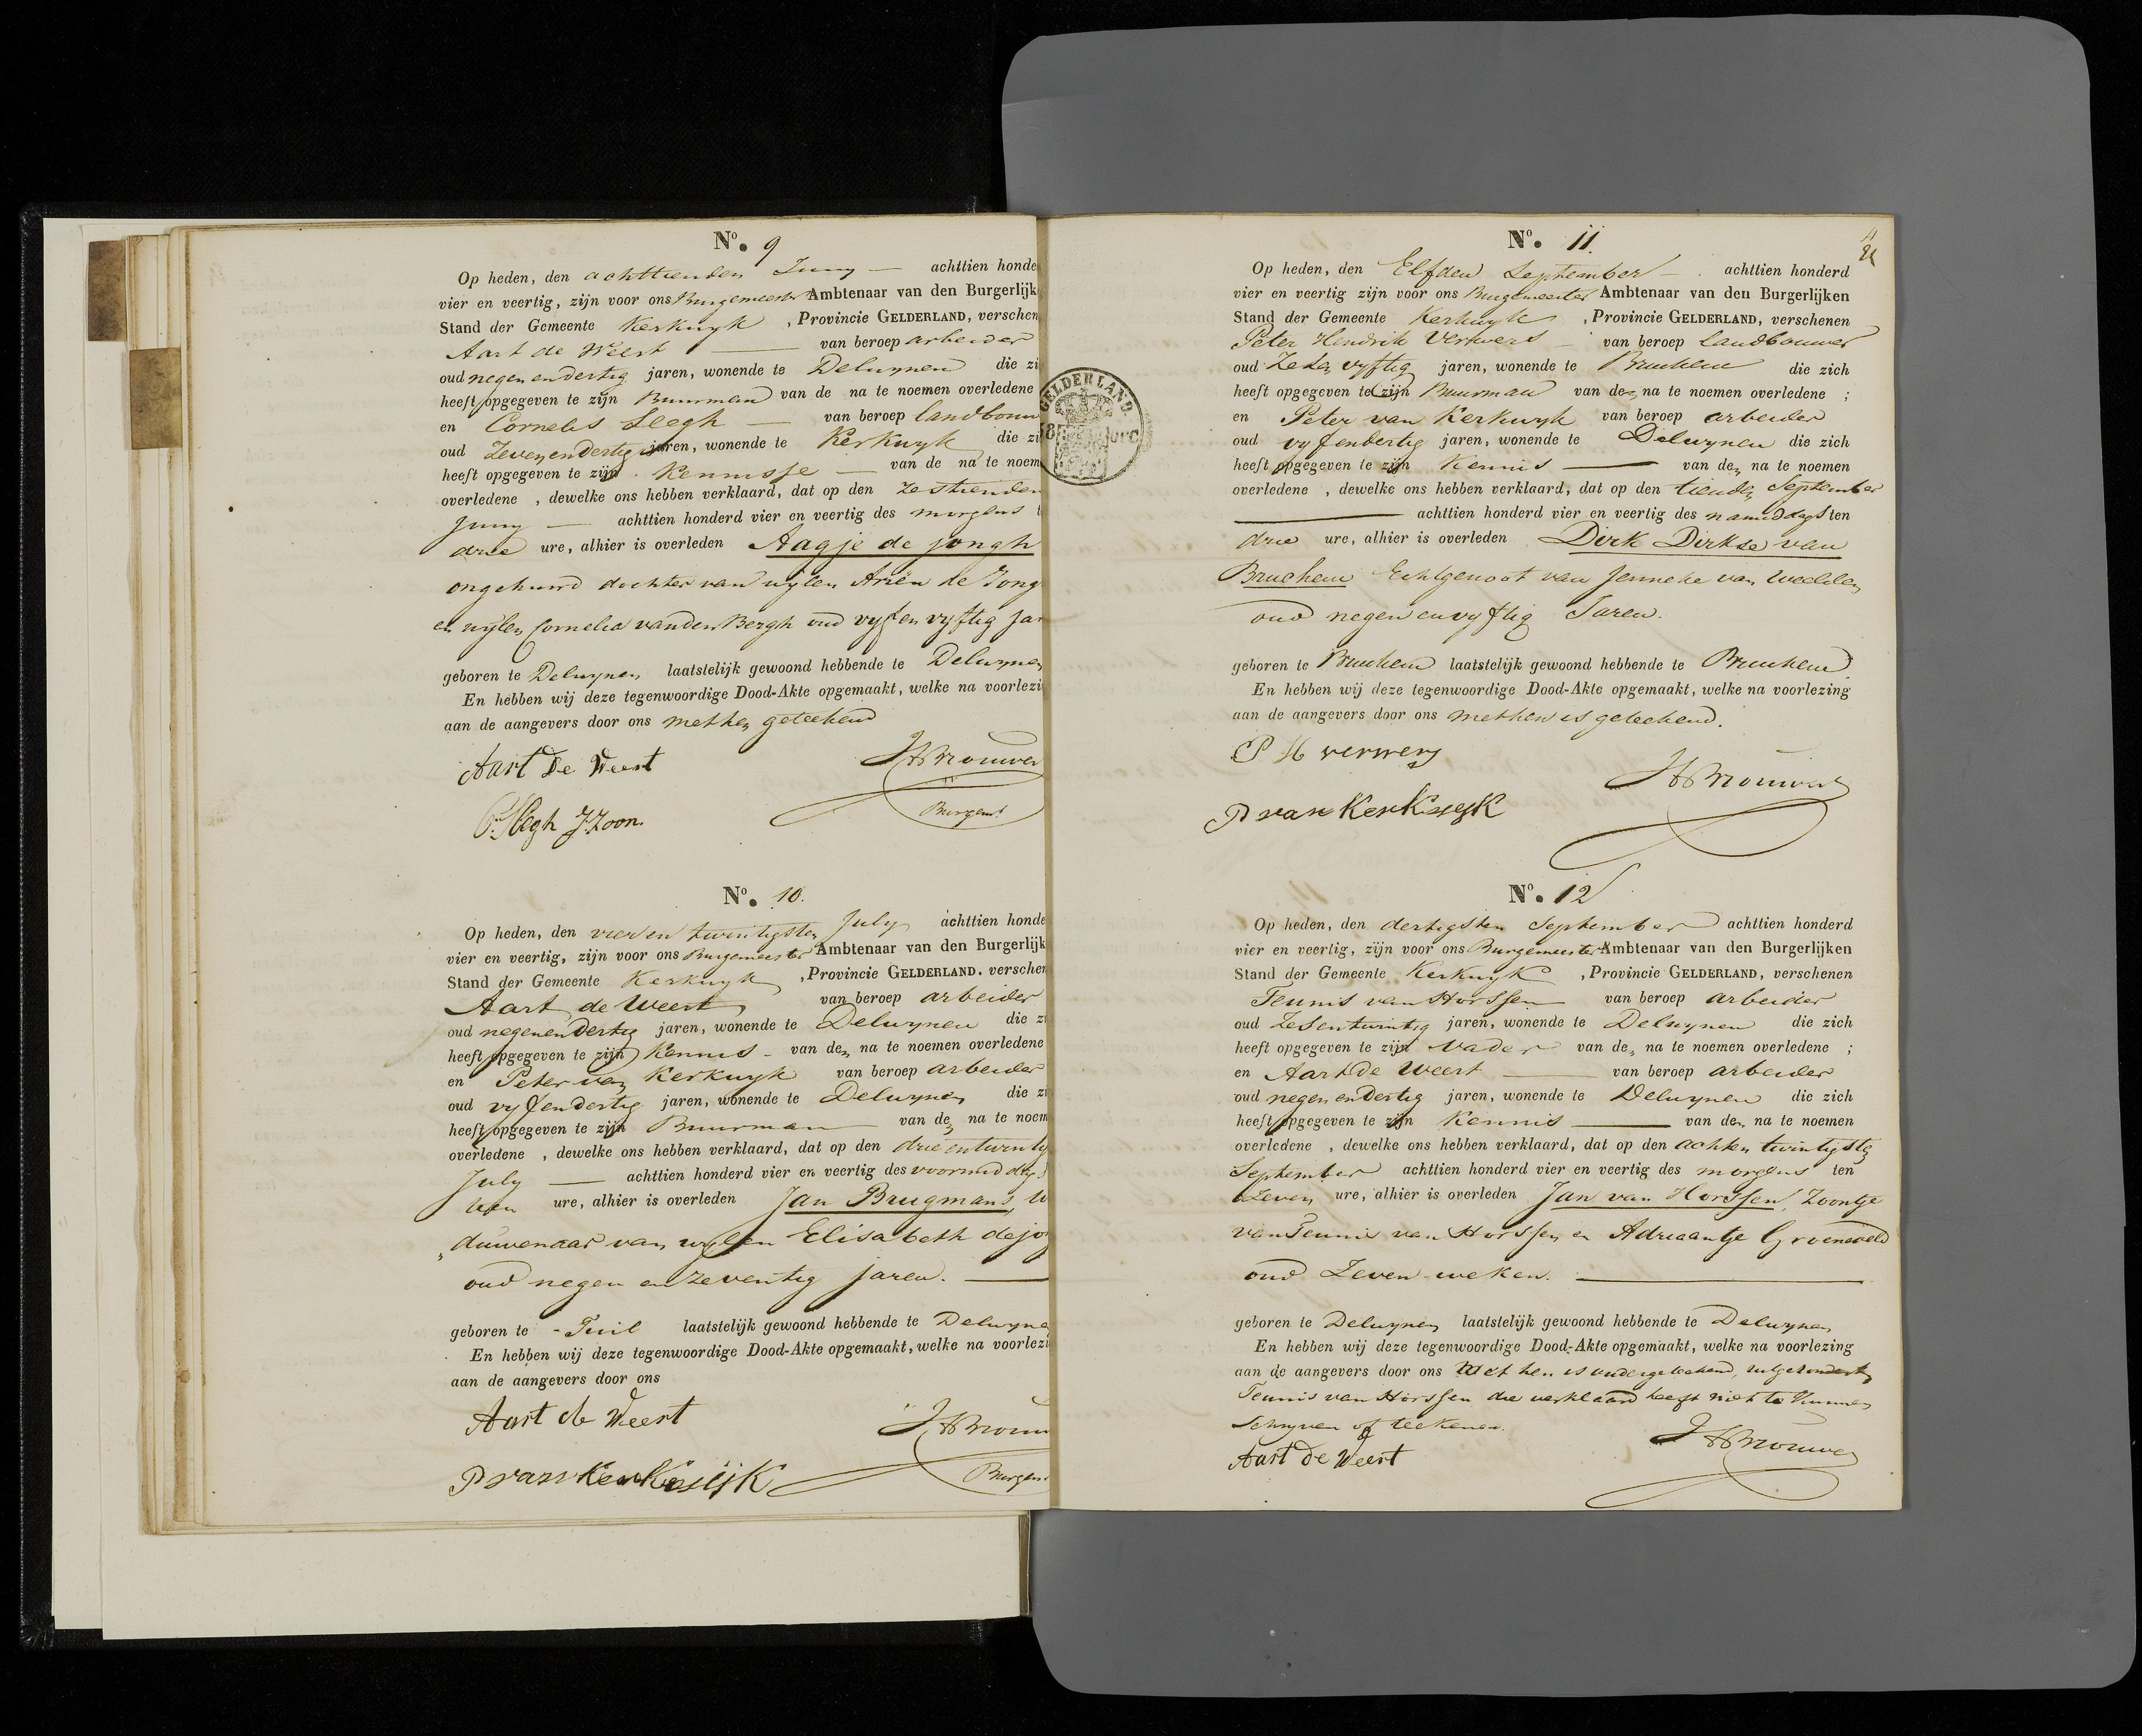 No. 9
Op heden, den achttienden Juny — achttien honde
vier en veertig, zijn voor ons Burgemeester Ambtenaar van den Burgerlijk
Stand der Gemeente Kerkwyk , Provincie GELDERLAND, verschen
Aart de Weert — van beroep arbeider
oud negen endertig jaren, wonende te Delwynen die zi
heeft opgegeven te zijn Buurman van de na te noemen overledene
en Cornelis Slegh — van beroep landbouw
oud Zevenendertig jaren, wonende te Kerkwyk die zi
heeft opgegeven te zijn Kennisse — van de na te noem
overledene , dewelke ons hebben verklaard, dat op den zestienden
Juny — achttien honderd vier en veertig des morgens t
drie ure, alhier is overleden Aagje de jongh
ongehuwd dochter van wijlen Ariën de Jong
en wijlen Cornelia vanden Bergh oud vyf en vyftig jar
geboren te Delwynen laatstelijk gewoond hebbende te Delwynen
En hebben wij deze tegenwoordige Dood-Akte opgemaakt, welke na voorlezi
aan de aangevers door ons met hen geteekend
Aart De Weert
JHBrouwer
C. Slegh J.Zoon.
Burgem.
No. 10.
Op heden, den vier en twintigsten July achttien honde
vier en veertig, zijn voor ons Burgemeester Ambtenaar van den Burgerlijk
Stand der Gemeente Kerkwyk , Provincie GELDERLAND. verschen
Aart de Weert van beroep arbeider
oud negenendertig jaren, wonende te Delwynen die zi
heeft opgegeven te zijn Kennis - van den na te noemen overledene
en Peter van Kerkwyk van beroep arbeider
oud vyfendertig jaren, wonende te Delwynen die zi
heeft opgegeven te zijn Buurman van den na te noem
overledene , dewelke ons hebben verklaard, dat op den drieentwintig
July — achttien honderd vier en veertig des voormiddags
tien ure, alhier is overleden Jan Brugmans, W
duwenaar van wylen Elisabeth de jon
oud negen en zeventig jaren. —
geboren te - Tuil laatstelijk gewoond hebbende te Delwyne
En hebben wij deze tegenwoordige Dood-Akte opgemaakt, welke na voorlezi
aan de aangevers door ons
Aart de Weert
JHBrouw
P van Kerkwijk
Burgem
GELDERLAND.
No. 11
Op heden, den Elfden September — achttien honderd
vier en veertig zijn voor ons Burgemeester Ambtenaar van den Burgerlijken
Stand der Gemeente Kerkwyk , Provincie GELDERLAND, verschenen
Peter Hendrik Verwers — van beroep landbouwer
oud Zes en vyftig jaren, wonende te Bruchem die zich
heeft opgegeven te zijn Buurman van den na te noemen overledene ;
en Peter van Kerkwyk van beroep arbeider
oud vyfendertig jaren, wonende te Delwynen die zich
heeft opgegeven te zijn Kennis — van den na te noemen
overledene , dewelke ons hebben verklaard, dat op den tienden September
— achttien honderd vier en veertig des namiddags ten
drie ure, alhier is overleden Dirk Dirkse van
Bruchem Echtgenoot van Jenneke van Weelden
oud negen en vyftig Jaren.
geboren te Bruchem laatstelijk gewoond hebbende te Bruchem
En hebben wij deze tegenwoordige Dood-Akte opgemaakt, welke na voorlezing
aan de aangevers door ons met hen is geteekend.
P H verwers
JHBrouwer
P van Kerkwijk
No. 12
Op heden, den dertigsten September achttien honderd
vier en veertig, zijn voor ons Burgemeester Ambtenaar van den Burgerlijken
Stand der Gemeente Kerkwyk , Provincie GELDERLAND, verschenen
Teunis van Horssen van beroep arbeider
oud Zesentwintig jaren, wonende te Delwynen die zich
heeft opgegeven te zijn vader van den na te noemen overledene ;
en Aart De Weert — van beroep arbeider
oud negen endertig jaren, wonende te Delwynen die zich
heeft opgegeven te zijn Kennis — van den na te noemen
overledene , dewelke ons hebben verklaard, dat op den achten twintigste
September achttien honderd vier en veertig des morgens ten
Zeven ure, alhier is overleden Jan van Horssen, Zoontje
van Teunis van Horssen en Adriaantje Groeneveld
oud Zeven weken. —
geboren te Delwynen laatstelijk gewoond hebbende te Delwynen
En hebben wij deze tegenwoordige Dood-Akte opgemaakt, welke na voorlezing
aan de aangevers door ons Met hen is ondergeteekend, uitgezonderd
Teunis van Horssen die verklaard heeft niet te kunnen
schryven of teekenen.
JHBrouwer
Aart De Weert